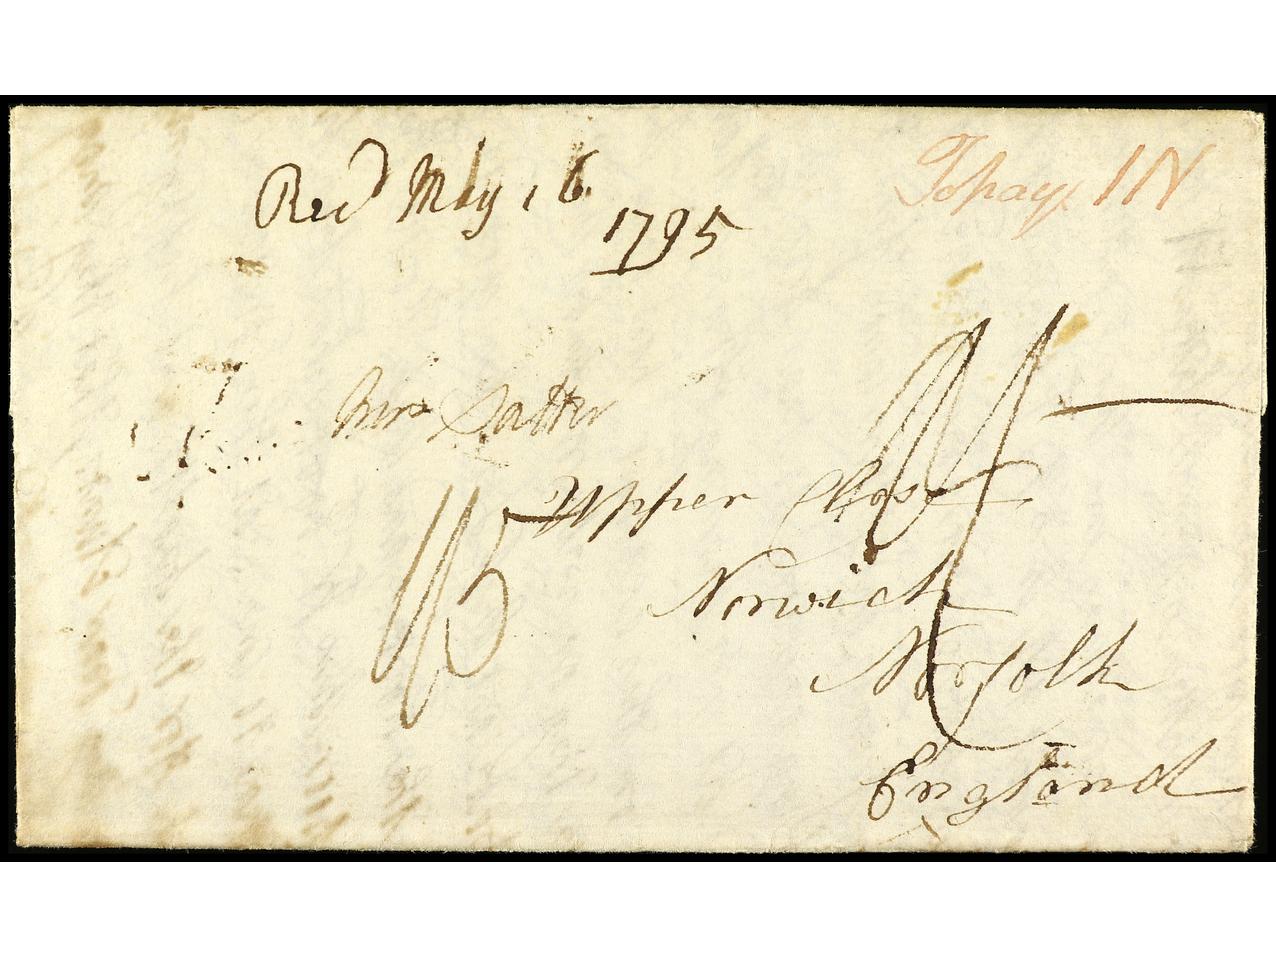 Recd May 16
1795
To pay 1N
Mrs Salter
Upper Close
Norwich
Norfolk
England